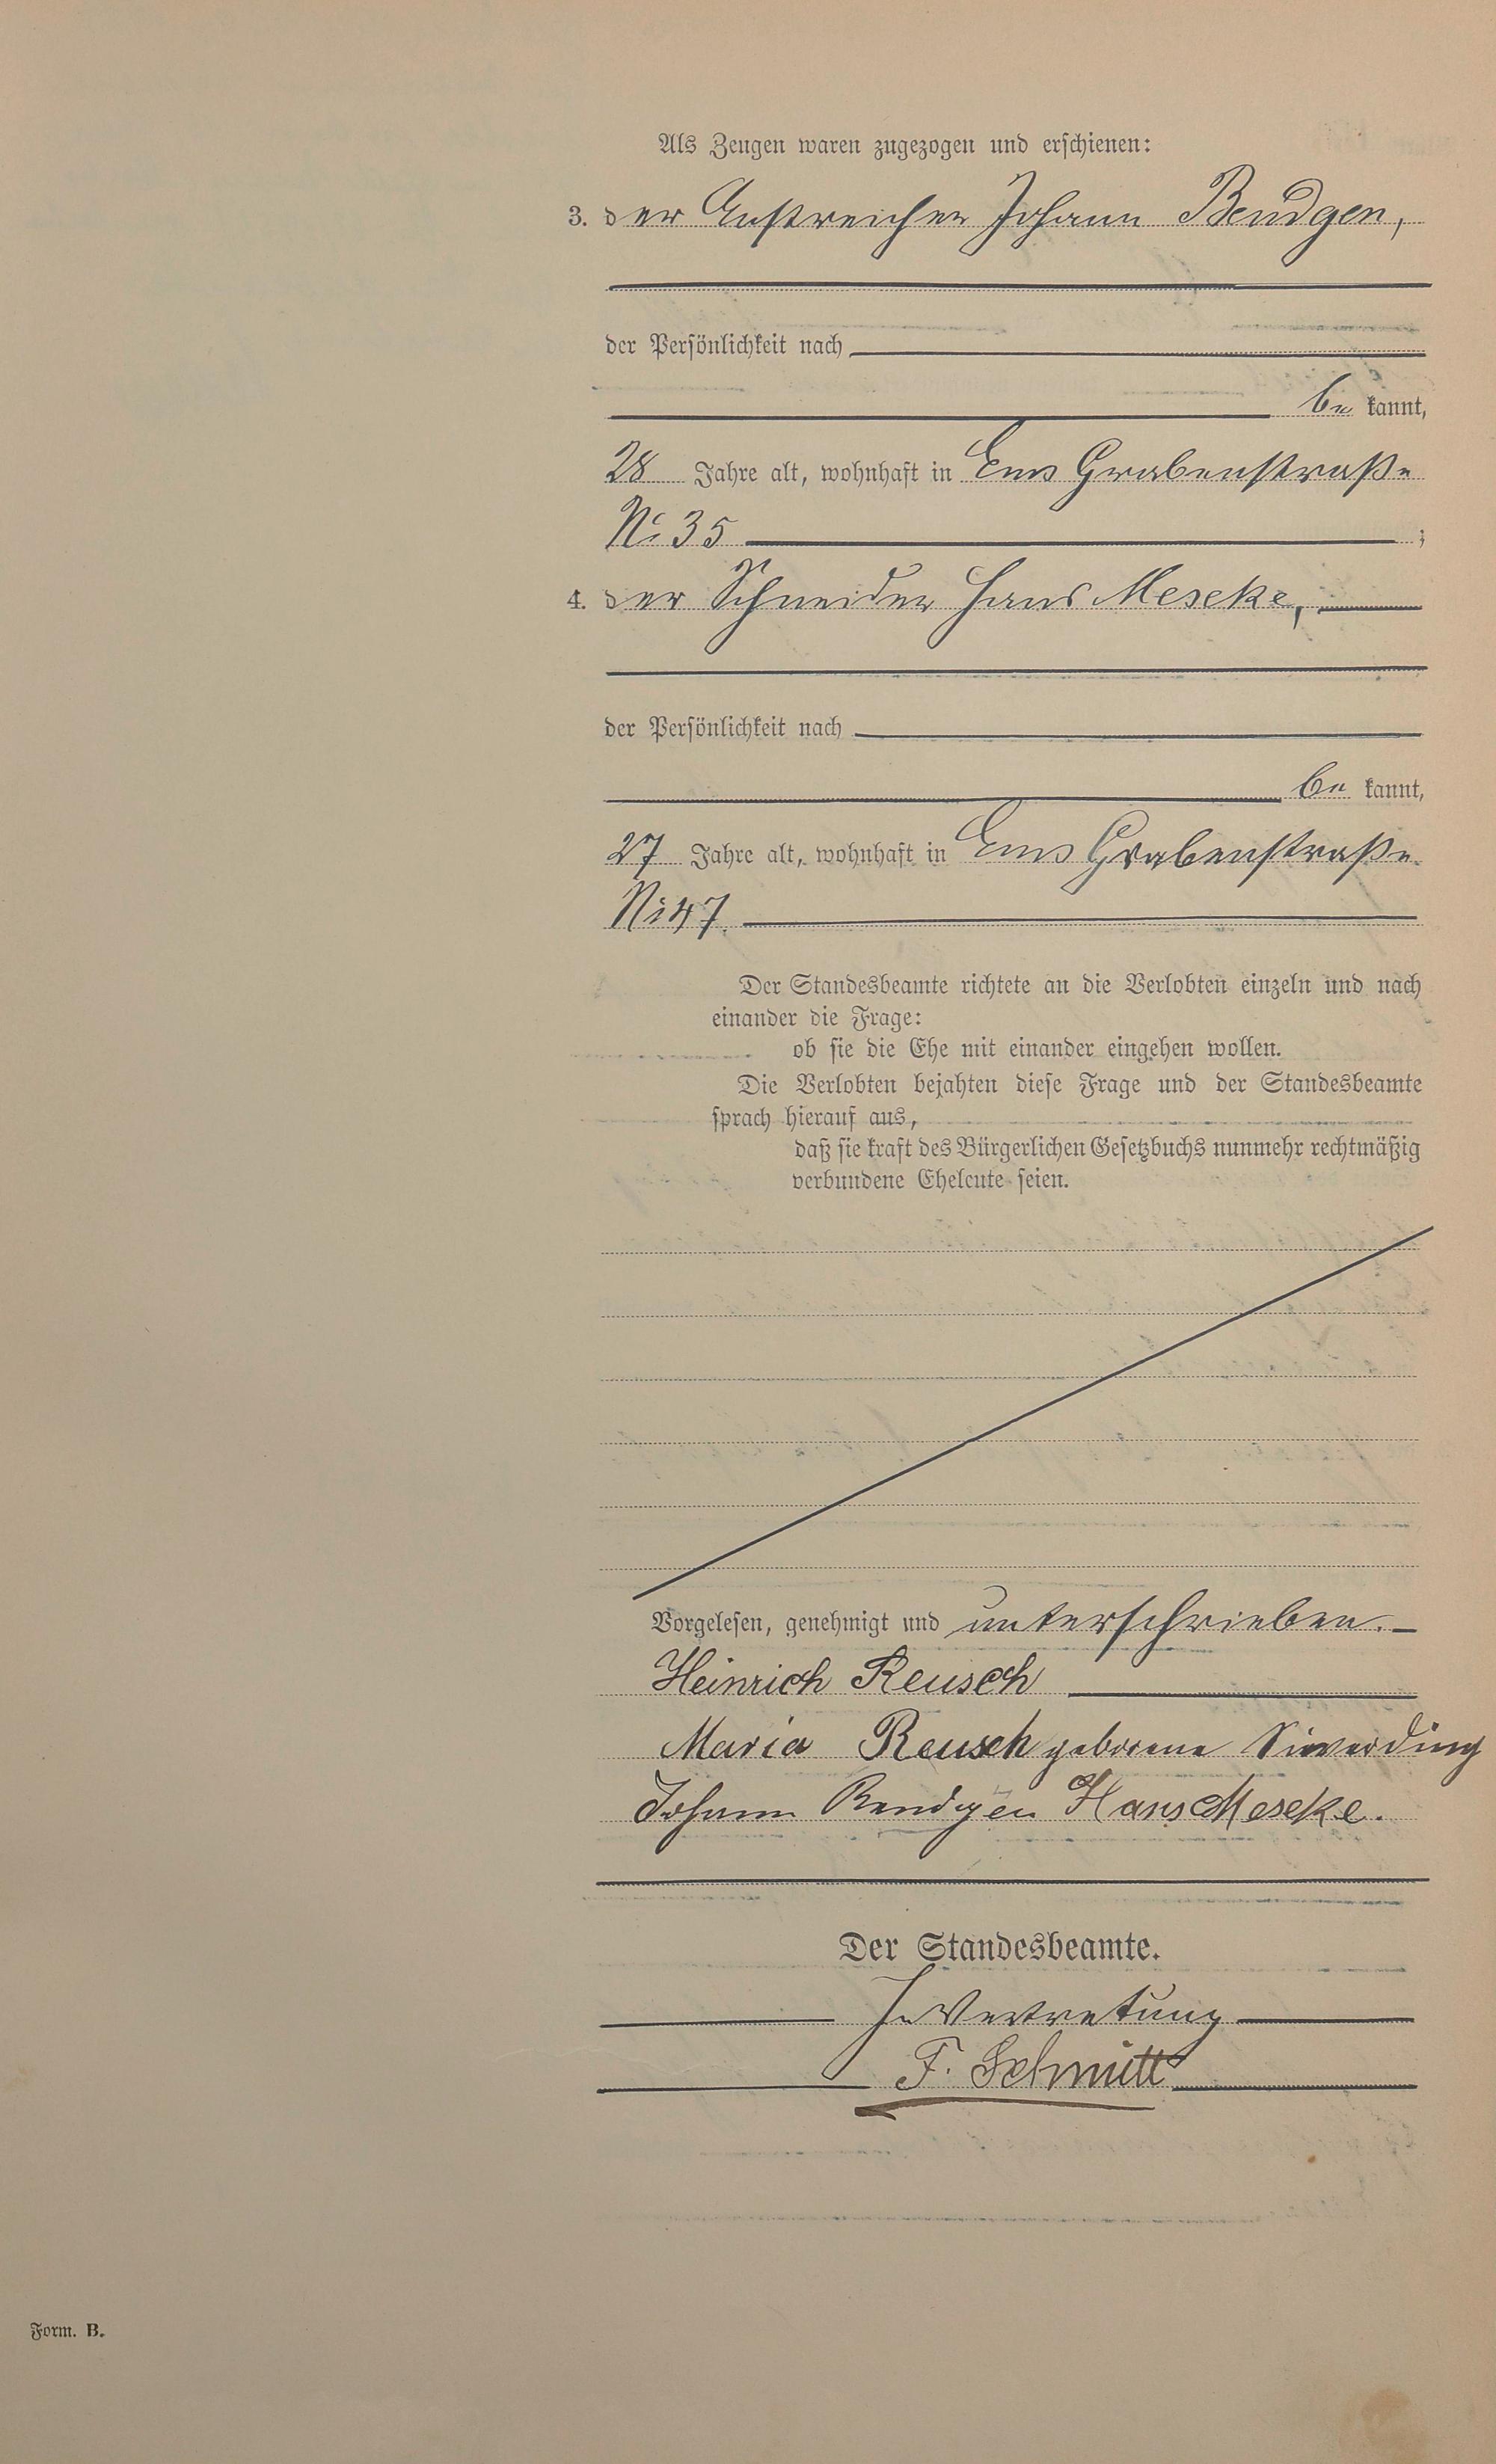 Als Zeugen waren zugezogen und erschienen:
3. der Anstreicher Johann Bendgen,
der Persönlichkeit nach
be kannt,
28 Jahre alt, wohnhaft in Ems Grabenstraße
No 35 ;
4. der Schneider Hans Meseke,
der Persönlichkeit nach
be kannt,
27 Jahre alt, wohnhaft in Ems Grabenstraße
No 47.
Der Standesbeamte richtete an die Verlobten einzeln und nach
einander die Frage:
ob sie die Ehe mit einander eingehen wollen.
Die Verlobten bejahten diese Frage und der Standesbeamte
sprach hierauf aus,
daß sie kraft des Bürgerlichen Gesetzbuchs nunmehr rechtmäßig
verbundene Eheleute seien.
Vorgelesen, genehmigt und unterschrieben.
Heinrich Reusch
Maria Reusch geborene Siverding
Johann Bendgen Hans Meseke.
Der Standesbeamte.
In Vertretung
F. Schmitt
Form. B.